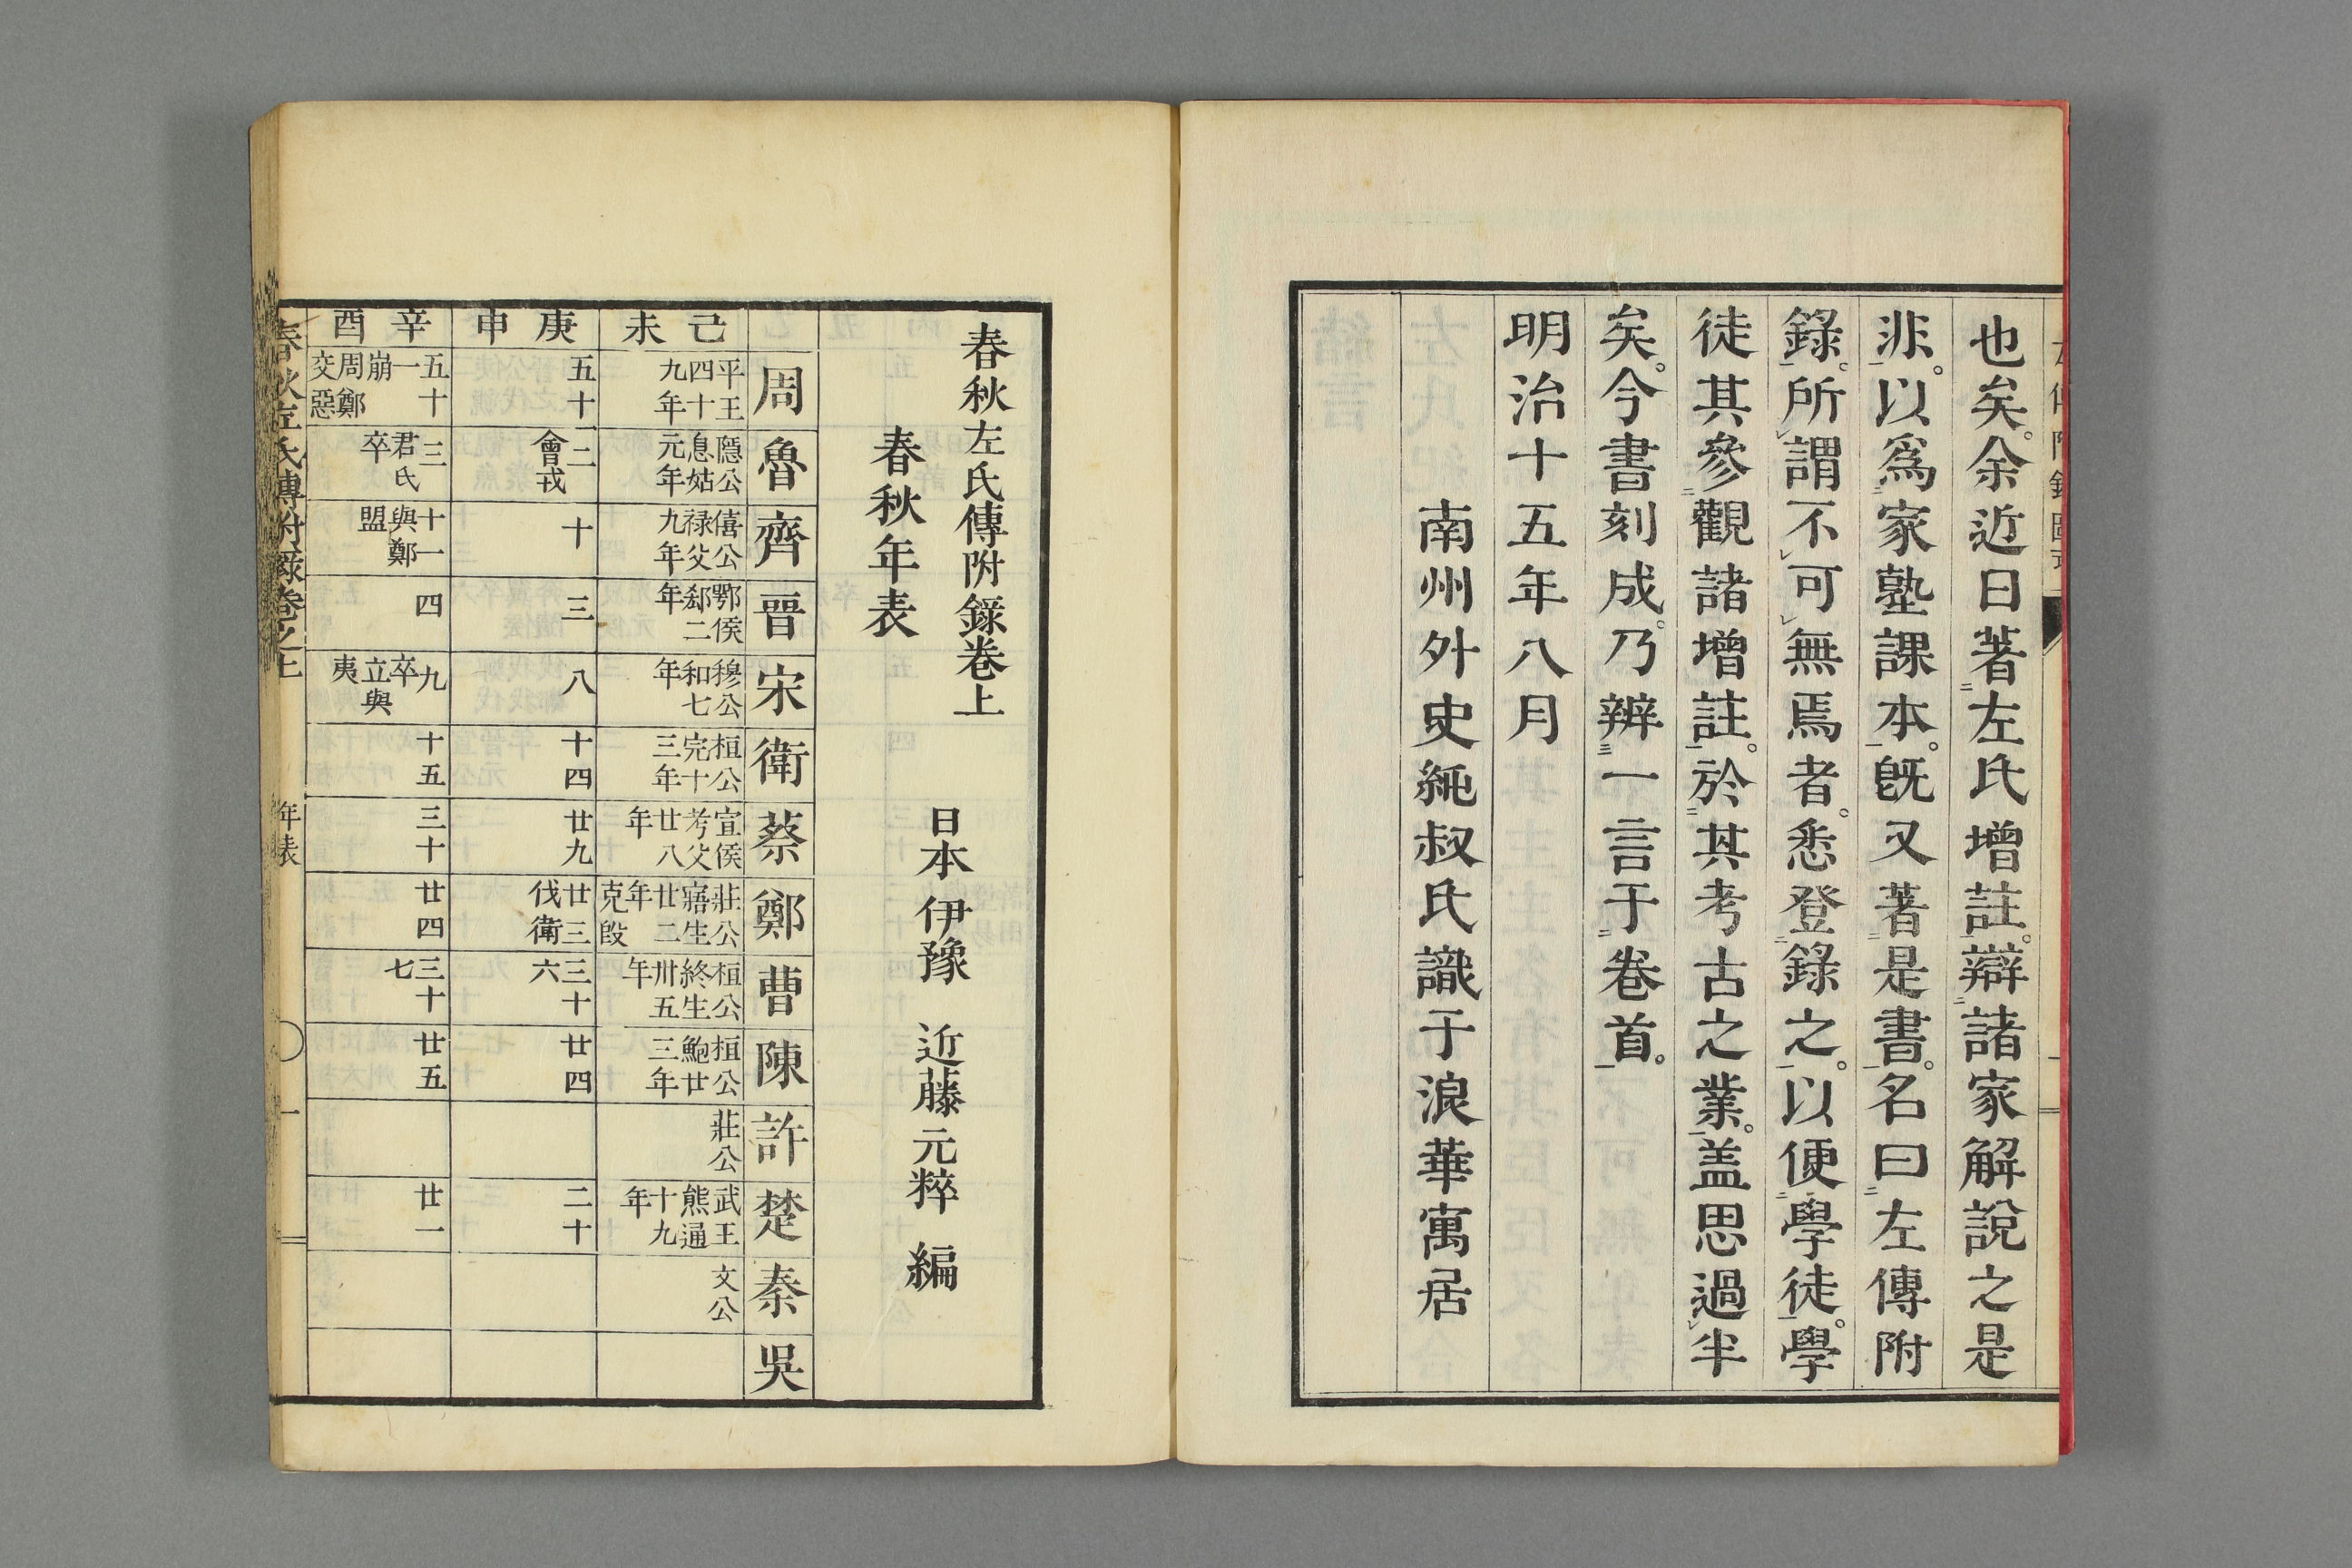 也矣。余近日著左氏增註。辯諸家解說之是
非。以爲家塾課本。既又著是書。名曰左傳附
錄。所謂不可無焉者。悉登錄之。以便學徒。學
徒其參觀諸增註。於其考古之業。盖思過半
矣。今書刻成。乃辨一言于卷首。
明治十五年八月
南州外史純叔氏識于浪華寓居
春秋左氏傳附錄卷上
日本 伊豫 近藤元粹 編
春秋年表
周
魯
齊
晉
宋
衛
蔡
鄭
曹
陳
許
楚
秦
吳
己未
平王
四十
九年
隱公
息姑
元年
僖公
祿父
九年
鄂侯
郄二
年
穆公
和七
年
桓公
完十
三年
宣侯
考父
廿八
年
莊公
寤生
廿二
年
克段
桓公
終生
卅五
年
桓公
鮑廿
三年
莊公
武王
熊通
十九
年
文公
庚申
五十
二
會戎
十
三
八
十四
廿九
廿三
伐衛
三十
六
廿四
二十
辛酉
五十
一
崩
周鄭
交惡
三
君氏
卒
十一
與鄭
盟
四
九
卒
立與
夷
十五
三十
廿四
三十
七
廿五
廿一
春秋左氏傳附錄卷之上
年表
一